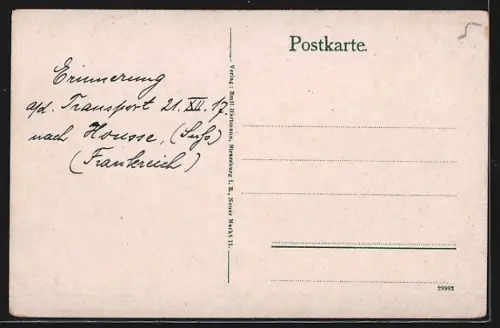 Postkarte.
5
Erinnerung
a/d. Transport 21. XII. 17.
nach Housse,
(Frankreich)
Verlag: Emil Hartmann, Strassburg i. E., Neuer Markt 11.